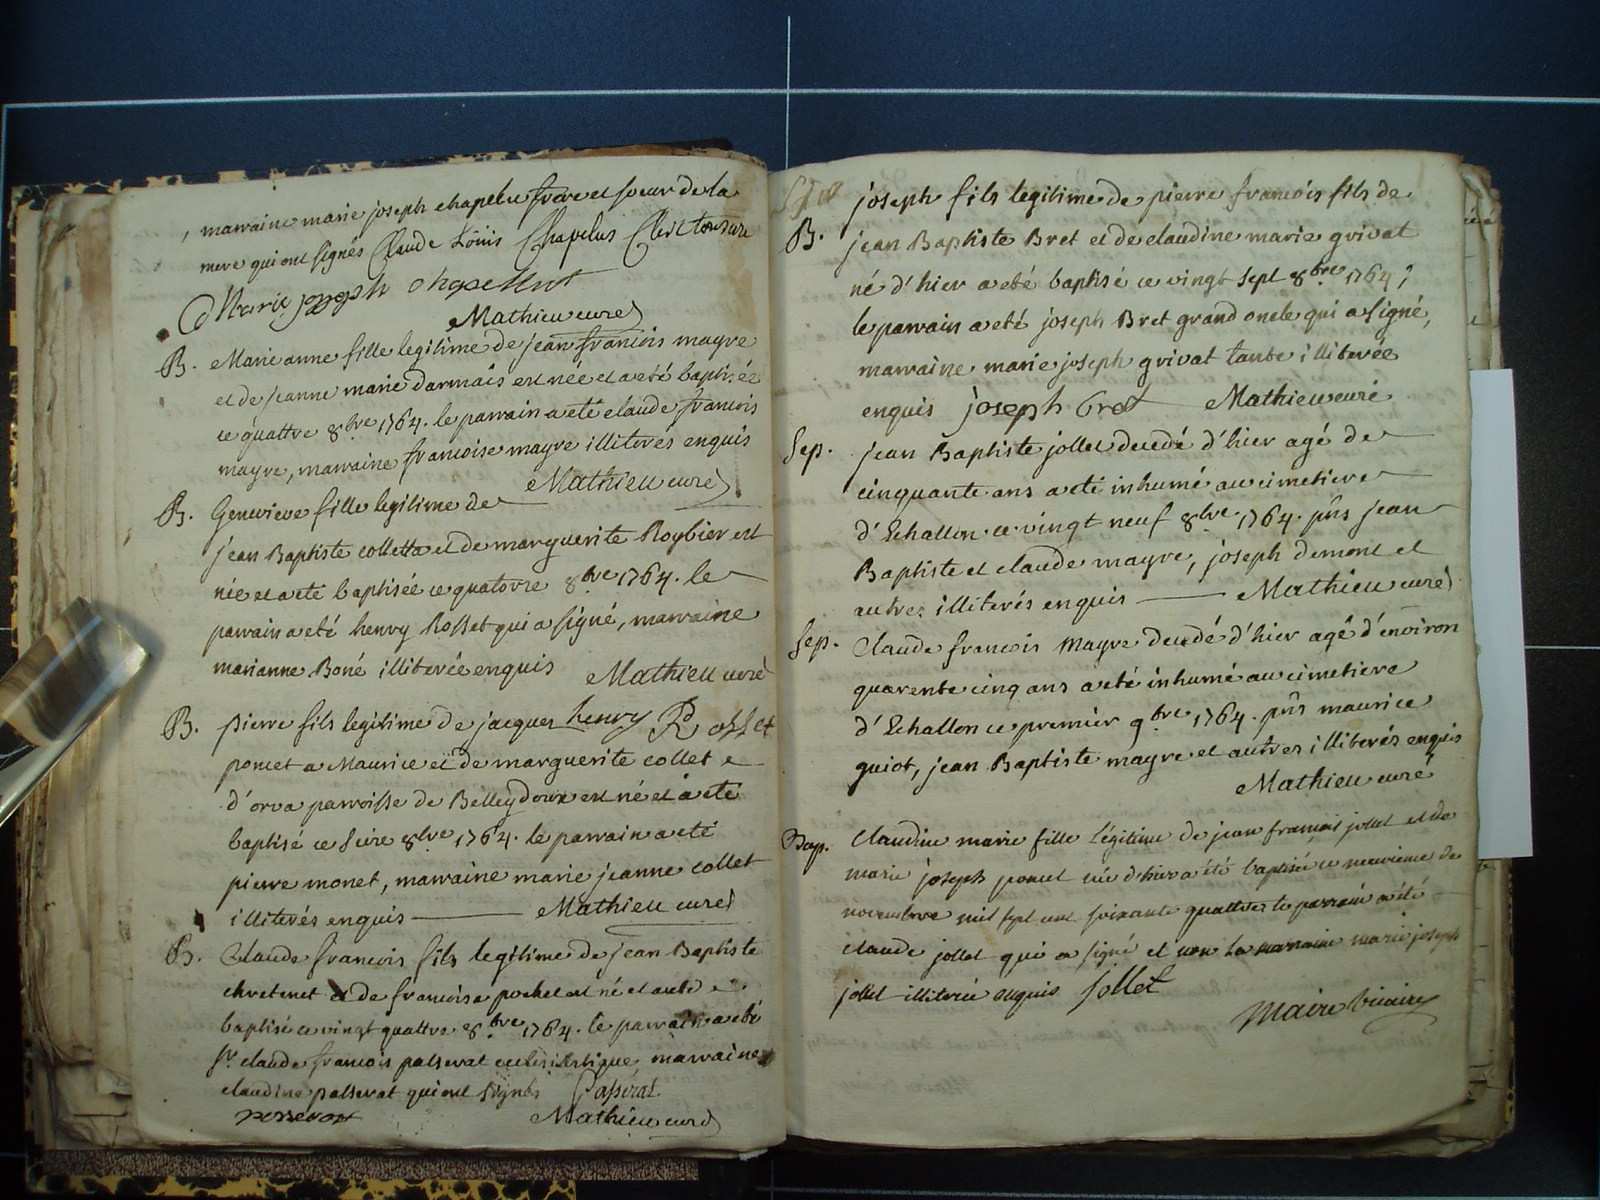 , marraine marie joseph chapelu frere et soeur de la
mere qui ont signés Claude Loüis Chapelus Clerc tonsuré
Marie joseph chapellut
Mathieu curé
B. Marie anne fille legitime de jean francois mayre
et de jeanne marie darmais est née et a eté baptisée
ce quattre 8.bre 1764. le parrain a eté claude francois
mayre, marraine francoise mayre illiteres enquis
Mathieu curé
B. Genevieve fille legitime de
jean Baptiste colletta et de marguerite Roybier est
née et a eté baptisée ce quatorze 8.bre 1764. le
parrain a eté henry Rosset qui a signé, marraine
marianne Boné illiterée enquis Mathieu curé
B. pierre fils legitime de jacques henry Rosset
poncet a Maurice et de marguerite collet
d'orva parroisse de Belleydoux est né et a eté
baptisé ce seize 8bre 1764. le parrain a eté
pierre monet, marraine marie jeanne collet
illiterés enquis Mathieu curé
B. Claude francois fils legitime de jean Baptiste
chretenet et de francoise pochet est né et a eté
baptisé ce vingt quattre 8.bre 1764. le parrain a eté
Sr. claude francois passerat ecclesiastique, marraine
claudine passerat qui ont signés Passerat
Mathieu curé
joseph fils legitime de pierre francois fils de
B. jean Baptiste Bret et de claudine marie grivat
né d'hier a eté baptisé ce vingt sept 8.bre 1764;
le parrain a eté joseph Bret grand oncle qui a signé,
marraine marie joseph grivat tante illiterée
enquis joseph bret Mathieu curé
Sep. jean Baptiste jollet decedé d'hier agé de
cinquante ans a eté inhumé au cimetiere
d'Echallon ce vingt neuf 8bre 1764. pñs jean
Baptiste et claude mayre, joseph demont et
autres illiterés enquis Mathieu curé
Sep. Claude francois Mayre decedé d'hier agé d'environ
quarente cinq ans a eté inhumé au cimetiere
d'Echallon ce premier 9.bre 1764. pñs maurice
guiot, jean Baptiste mayre et autres illiterés enquis
Mathieu curé
Bap. Claudine marie fille légitime de jean françois jollet et de
marie joseph poncet née d'hier a été baptisée ce neuvieme de
novembre mil sept cent soixante quattre le parrain a été
claude jollet qui a signé et non la marraine marie joseph
jollet illiterée enquis Jollet
Maire vicaire